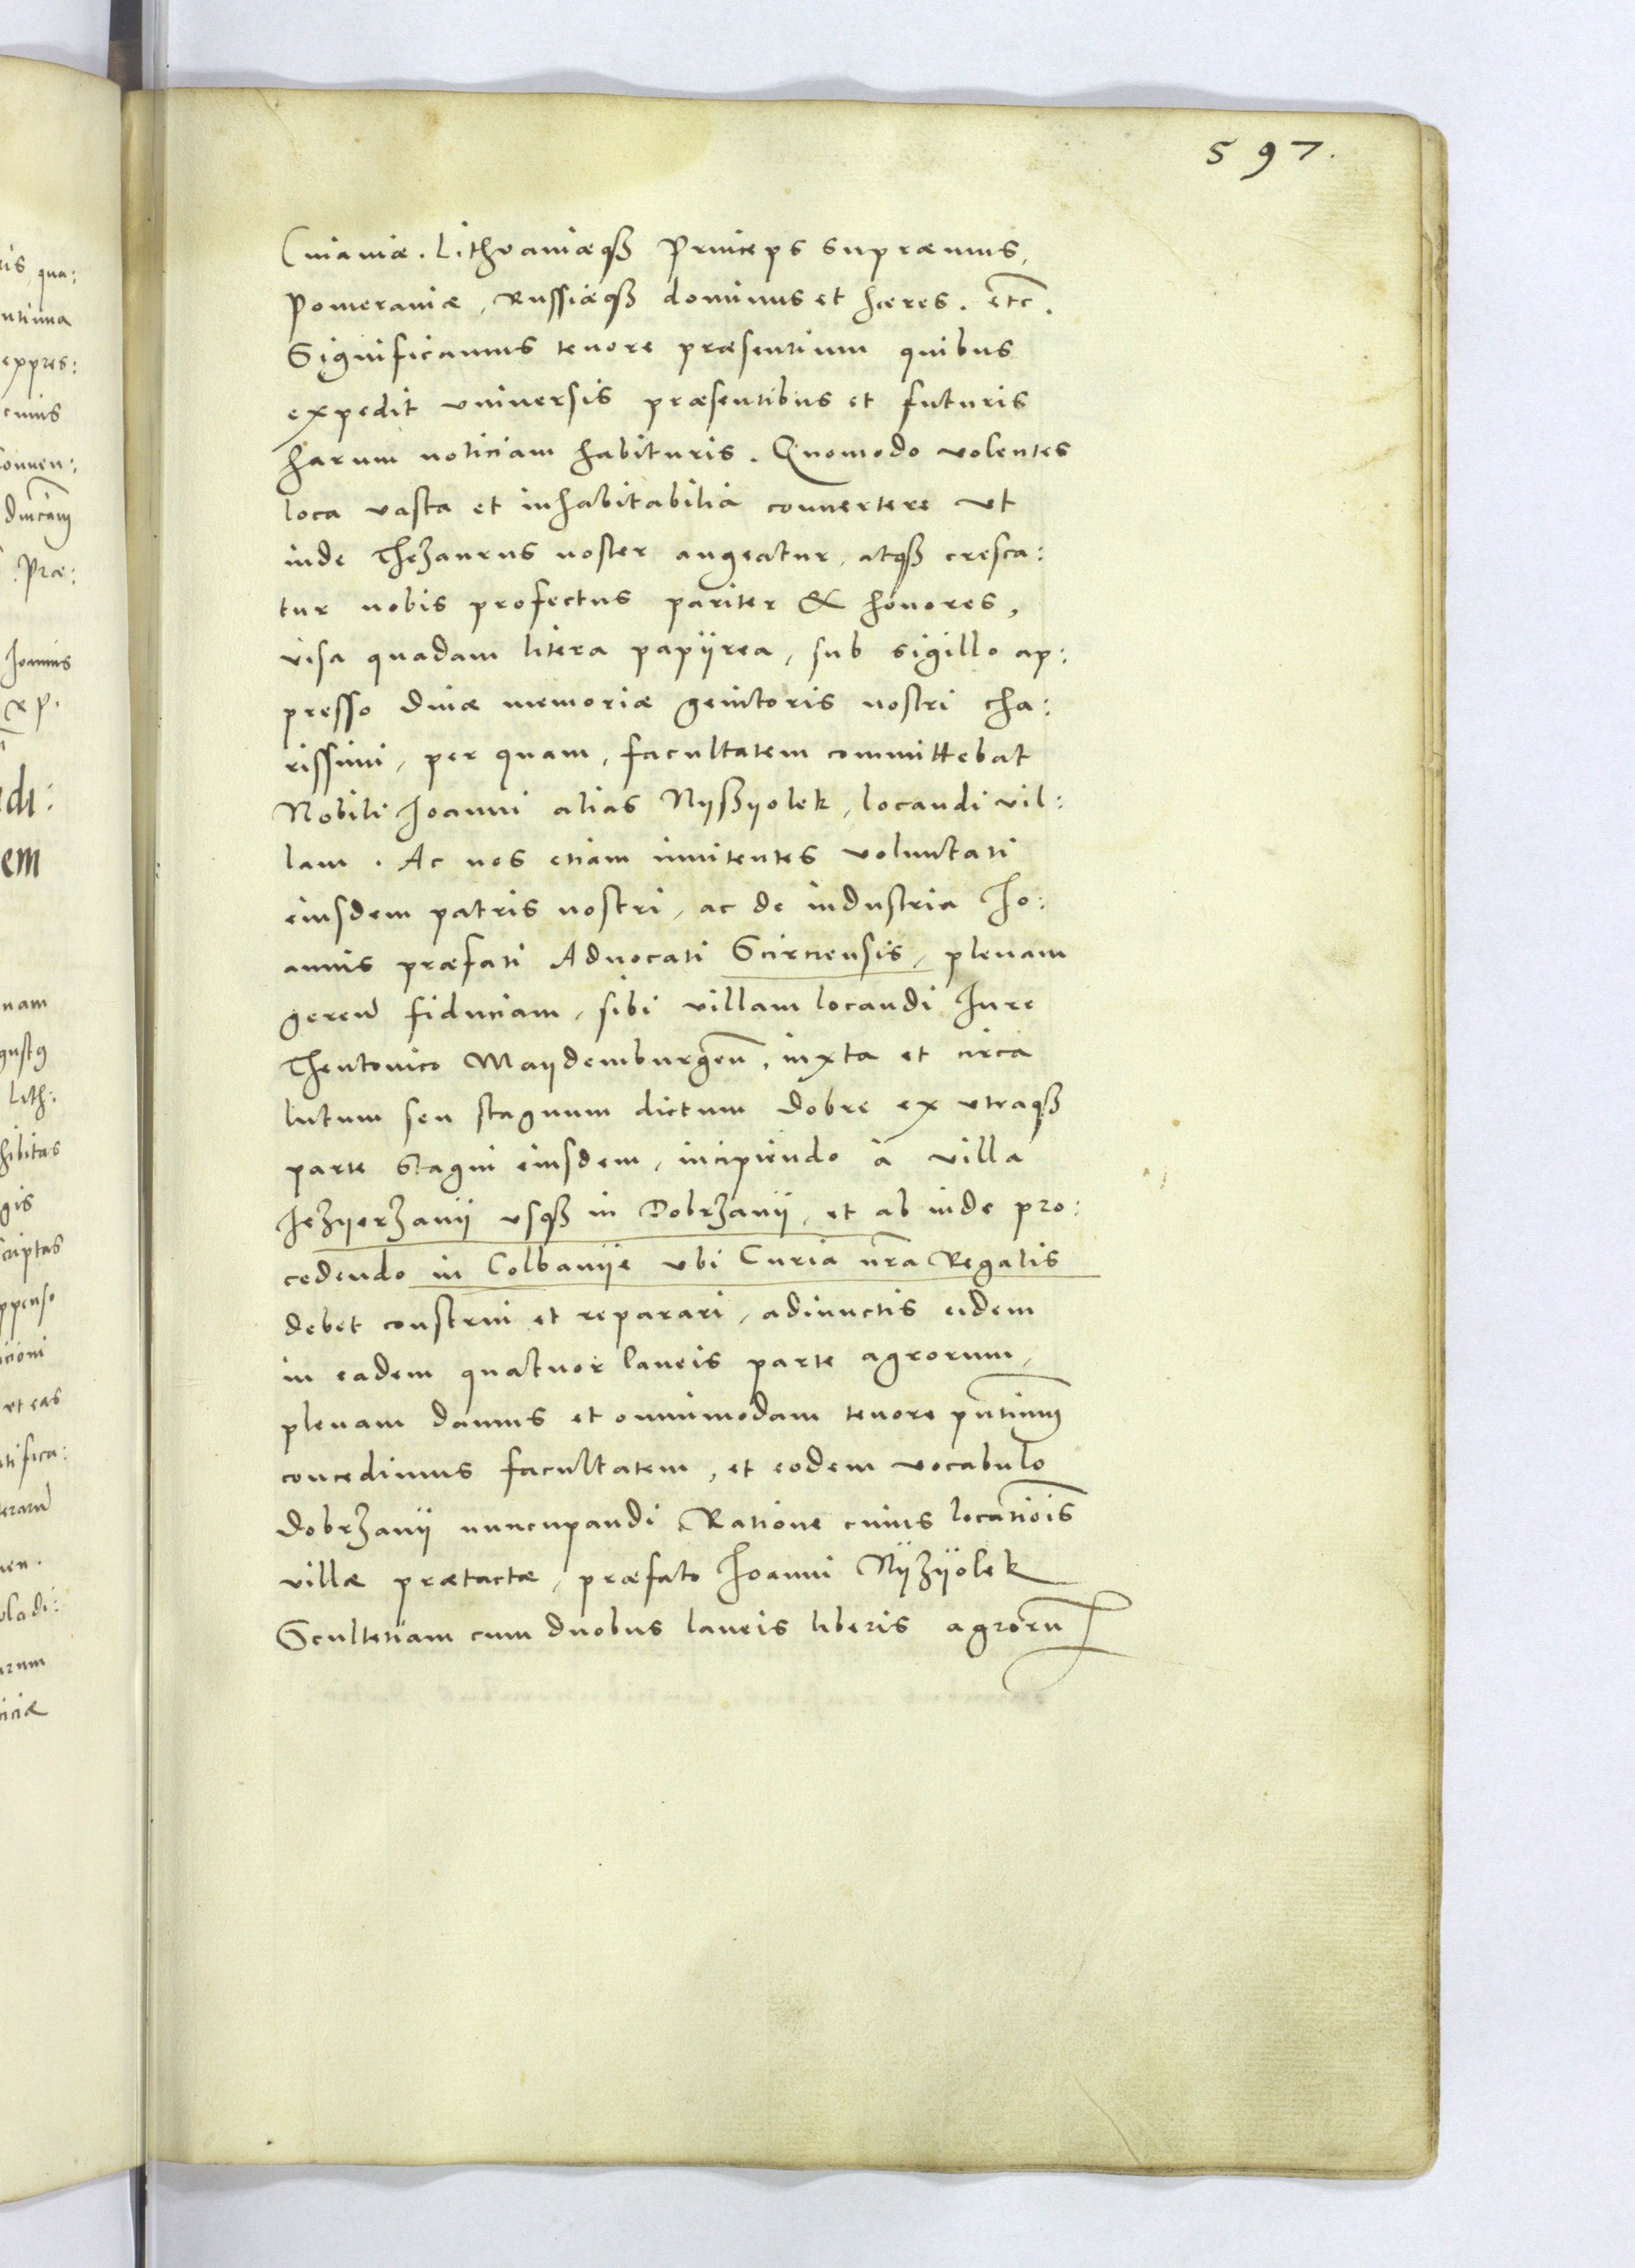 597.
Cuiaviæ. Lithvaniæqȝ Princeps supræmus,
Pomeraniæ, Russiæqȝ dominus et hæres. etc.
Significamus tenore præsentium quibus
expedit vniuersis præsentibus et futuris
harum noticiam habituris. Quomodo volentes
loca vasta et inhabitabilia conuertere vt
inde Thezaurus noster augeatur, atqȝ cresca:
tur nobis profectus pariter & honores,
visa quadam litera papÿrea, sub sigillo ap:
presso diuæ memoriæ genitoris nostri cha:
rissimi, per quam, facultatem committebat
Nobili Ioanni alias Nÿßÿolek, locandi vil:
lam. Ac nos etiam innitentes voluntati
eiusdem patris nostri, ac de industria Io:
annis præfati Aduocati Scirciensis, plenam
geren̄ fiduciam, sibi villam locandi Iure
Theutonico Maÿdemburgen̄, iuxta et circa
lutum seu stagnum dictum Dobre ex vtraqȝ
parte Stagni eiusdem, incipiendo à villa
Iezÿerzanÿ vsqȝ in Dobrzanÿ, et ab inde pro:
cedendo in Colbanÿe vbi Curia nr̄a Regalis
debet construi et reparari, adiunctis eidem
in eadem quatuor laneis parte agrorum,
plenam damus et omnimodam tenore pn̄tium
concedimus facultatem, et eodem vocabulo
Dobrzanÿ nuncupandi. Ratione cuius locatiōis
villæ prætactæ, præfato Ioanni Nÿzÿolek
Scultetiam cum duobus laneis liberis agrorū